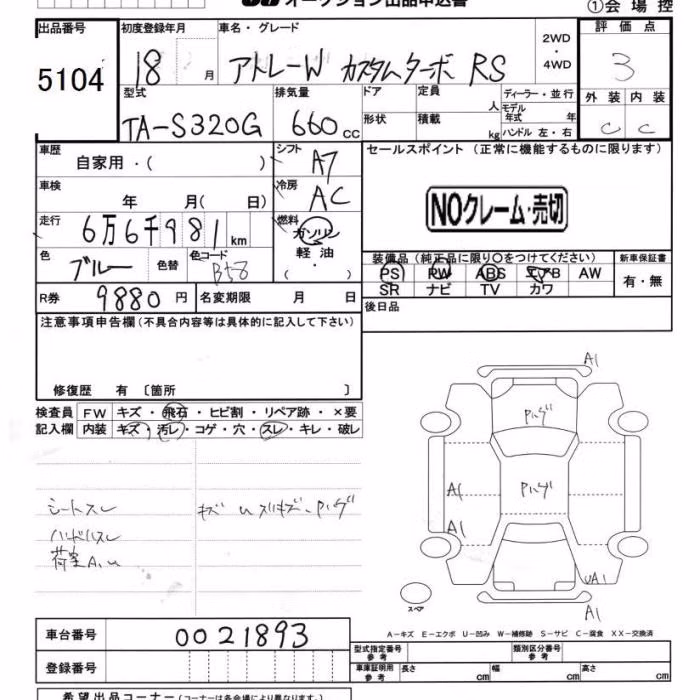 オークション出品申込書
①会場控
出品番号 初度登録年月 車名・グレード 2WD・4WD 評価点
5104 18 月 アトレーW カスタムターボ RS 3
外装 内装
C C
型式 排気量 ドア 定員 人 ディーラー・並行
TA-S320G 660cc 形状 積載 kg モデル年式 年
ハンドル 左・右
車歴 自家用・( ) シフト A7 セールスポイント (正常に機能するものに限ります)
車検 年 月( 日) 冷房 AC
NOクレーム・売切
走行 6万6千981km 燃料 ガソリン
軽油
・( )
色 ブルー 色替 色コード B58
装備品(純正品に限り○をつけてください) 新車保証書
PS PW ABS エアB AW 有・無
SR ナビ TV カワ
R券 9880円 名変期限 月 日 後日品
注意事項申告欄(不具合内容等は具体的に記入して下さい)
修復歴 有 〔箇所 〕
検査員 FW キズ・飛石・ヒビ割・リペア跡・×要
記入欄 内装 キズ・汚レ・コゲ・穴・スレ・キレ・破レ
シートスレ キズ
ハンドルスレ
荷室A,u
A1
A1
A1
UA1
A1
スペア
A-キズ E-エクボ U-凹み W-補修跡 S-サビ C-腐食 XX-交換済
車台番号 0021893
型式指定番号 参考 類別区分番号 参考
登録番号
車庫証明用 参考 長さ cm 幅 cm 高さ cm
希望出品コーナー(コーナーは各会場により異なります)